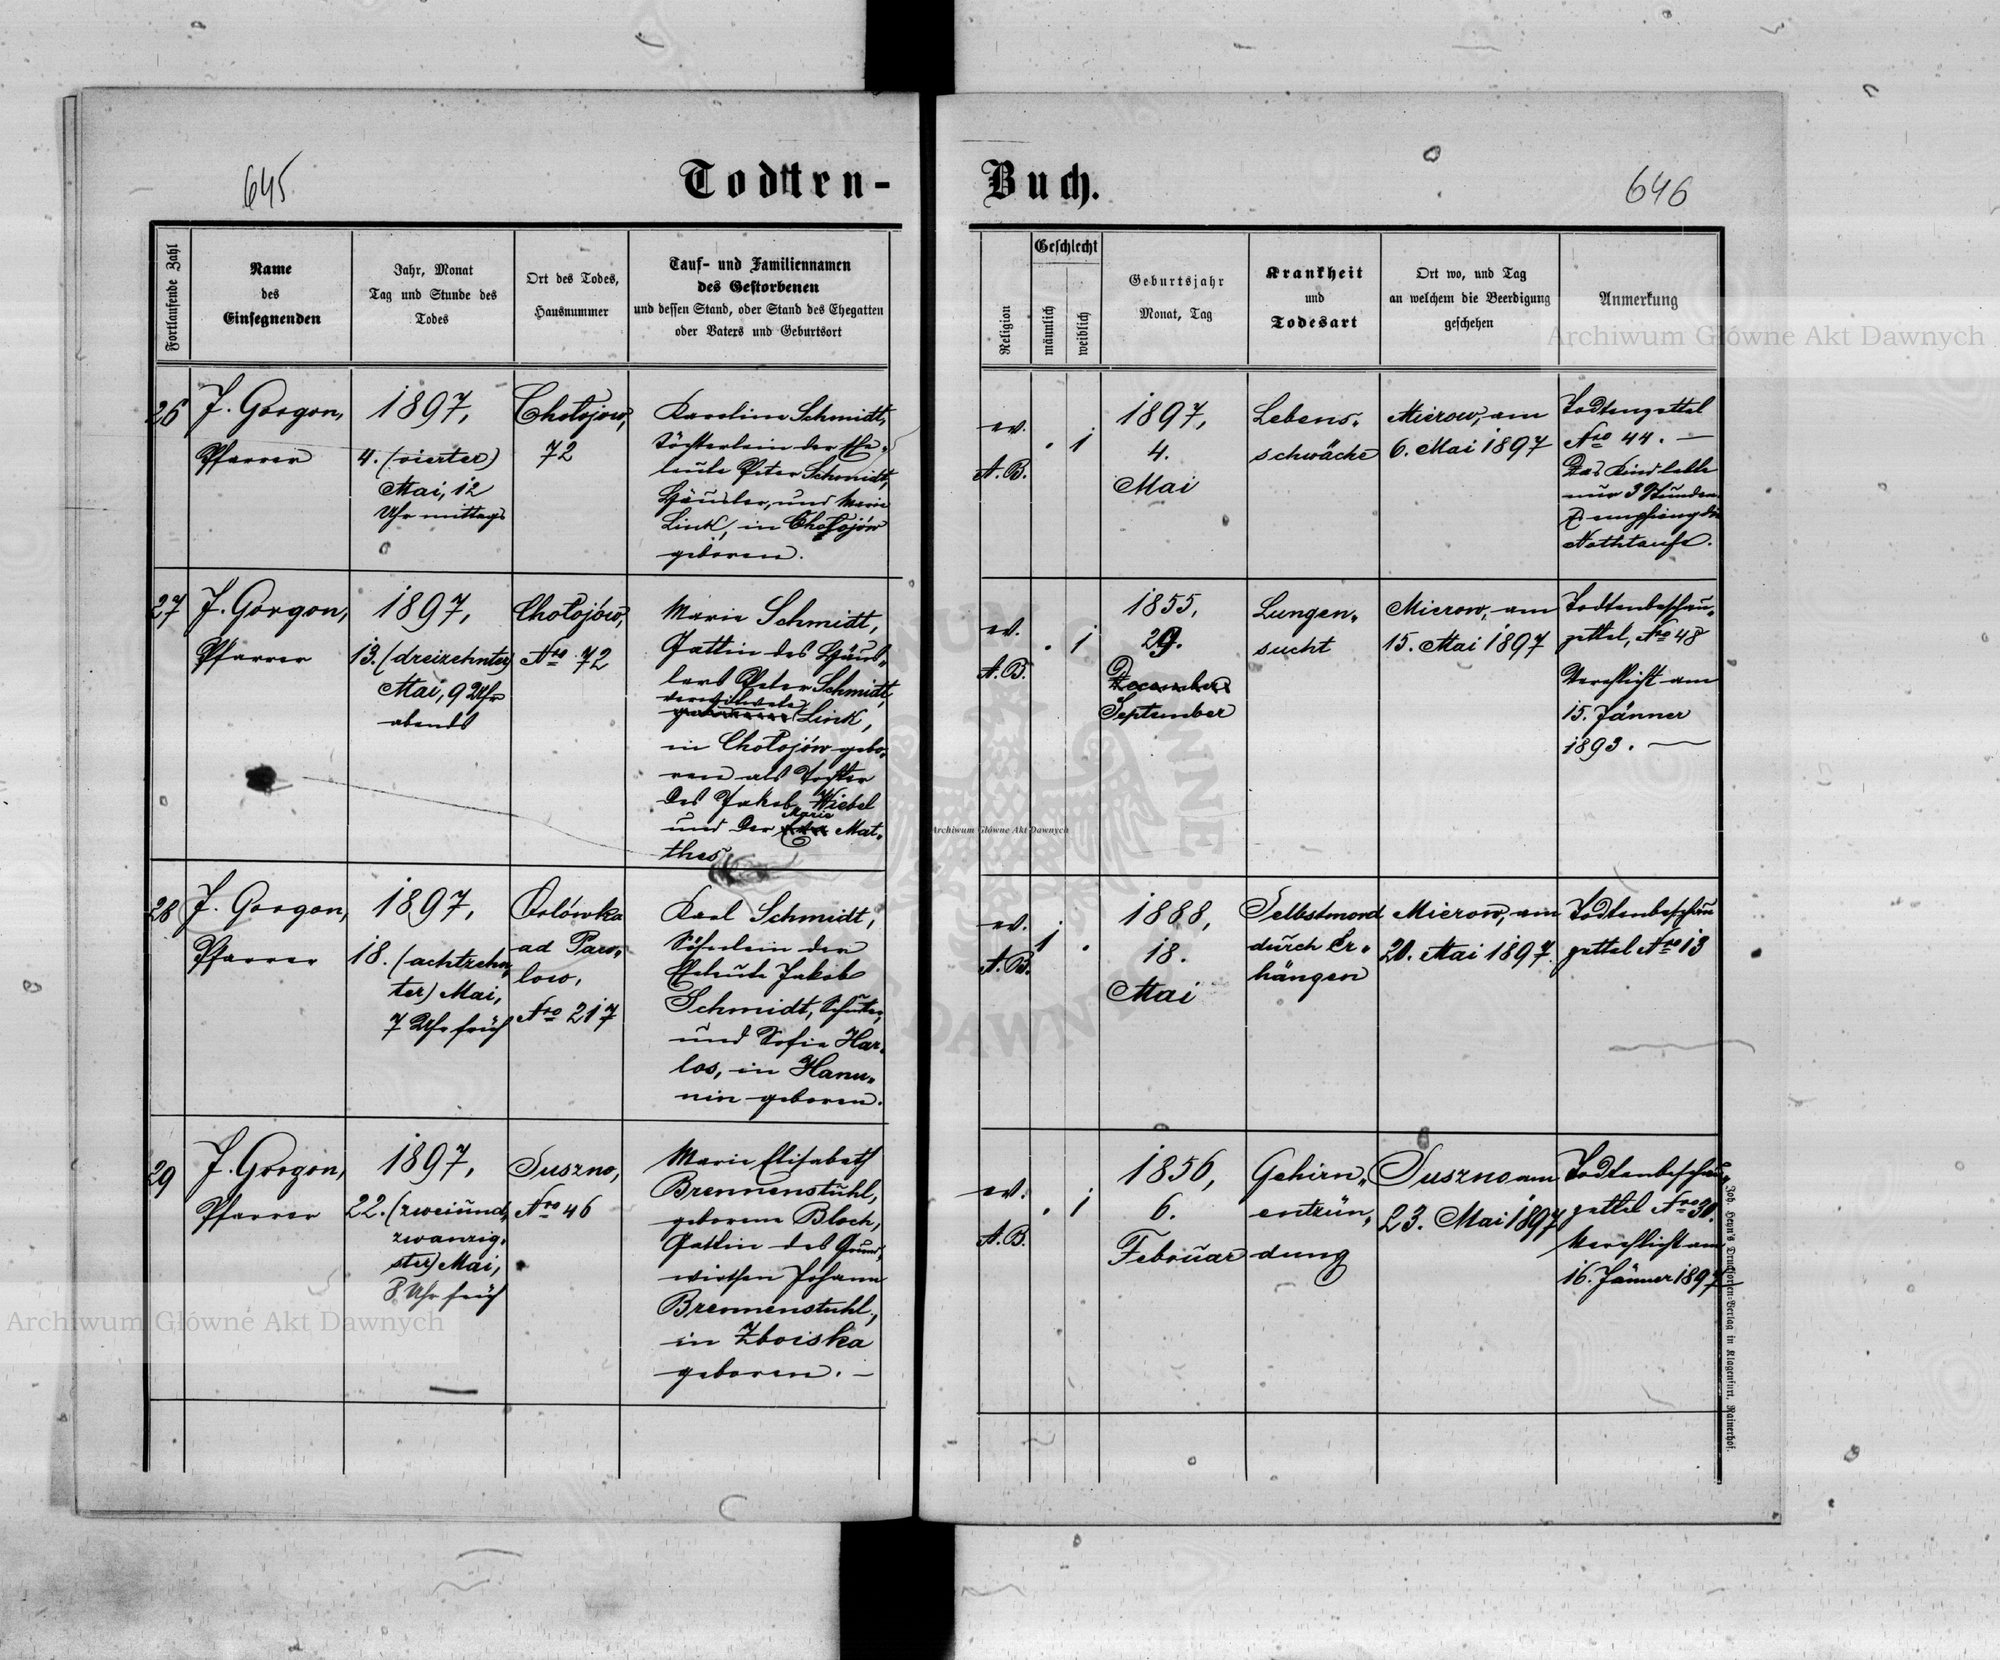 645
Todtten-
Buch.
646
Fortlaufende Zahl
Name
des
Einsegnenden
Jahr, Monat
Tag und Stunde des
Todes
Ort des Todes,
Hausnummer
Tauf- und Familiennamen
des Gestorbenen
und dessen Stand, oder Stand des Ehegatten
oder Vaters und Geburtsort
Religion
Geschlecht
männlich
weiblich
Geburtsjahr
Monat, Tag
Krankheit
und
Todesart
Ort wo, und Tag
an welchem die Beerdigung
geschehen
Anmerkung
26
J. Gorgon,
Pfarrer
1897,
4. (vierter)
Mai, 12
Uhr mittags
Chołojow,
72
Karoline Schmidt,
Töchterlein der Ehe-
leute Peter Schmidt,
Häusler, und Marie
Link, in Chołojów
geboren.
ev.
A.B.
. 1
1897,
4.
Mai
Lebens-
schwäche
Mierow, am
6. Mai 1897
Todtenzettel
Nro 44. —
Das Kind lebte
nur 3 Stunden
& empfieng die
Nothtaufe.
27
J. Gorgon,
Pfarrer
1897,
13. (dreizehnter)
Mai, 9 Uhr
abends
Chołojów,
Nro 72
Marie Schmidt,
Gattin des Häus-
lers Peter Schmidt,
verwitwete
Link,
in Chołojów gebo-
ren als Tochter
des Jakob Wiebel
Marie
und der Mat-
thes
ev.
A.B.
. 1
1855,
29.
December
September
Lungen-
sucht
Mierow, am
15. Mai 1897
Todtenbeschau-
zettel, Nro 48
Verehlicht am
15. Jänner
1893. —
28
J. Gorgon,
Pfarrer
1897,
18. (achtzehn-
ter) Mai,
7 Uhr früh
Orlówka
ad Paro-
low,
Nro 217
Karl Schmidt,
Söhnlein der
Eheleute Jakob
Schmidt,
und Sofie Har-
los, in Hanu-
nin geboren.
ev.
A.B.
1 .
1888,
18.
Mai
Selbstmord
durch Er-
hängen
Mierow, am
20. Mai 1897
Todtenbeschau
zettel Nro 13
29
J. Gorgon,
Pfarrer
1897,
22. (zweiund-
zwanzig-
ster) Mai,
8 Uhr früh
Suszno,
Nro 46
Marie Elisabeth
Brennenstuhl,
geborene Bloch,
Gattin des Grund-
wirthen Johann
Brennenstuhl,
in Zboiska
geboren. —
ev.
A.B.
. 1
1856,
6.
Februar
Gehirn-
entzün-
dung
Suszno am
23. Mai 1897
Todtenbeschau-
zettel Nro 30.
Verehlicht am
16. Jänner 1897
Joh. Heyn's Drucksorten-Verlag in Klagenfurt, Rainerhof.
Archiwum Główne Akt Dawnych
Archiwum Główne Akt Dawnych
Archiwum Główne Akt Dawnych